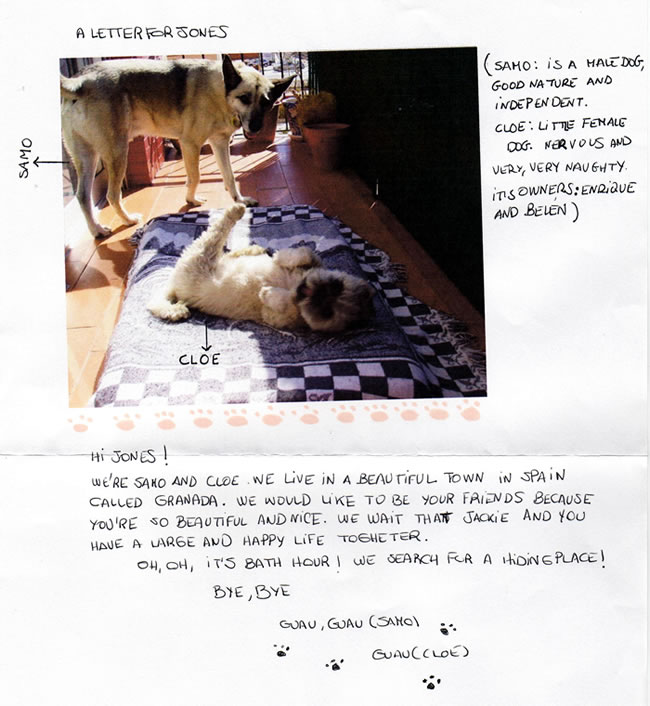 A LETTER FOR JONES
(SAMO: IS A MALE DOG,
GOOD NATURE AND
INDEPENDENT.
CLOE: LITTLE FEMALE
DOG. NERVOUS AND
VERY, VERY NAUGHTY.
ITS OWNERS: ENRIQUE
AND BELÉN)
SAMO
CLOE
Hi JONES!
WE'RE SAMO AND CLOE. WE LIVE IN A BEAUTIFUL TOWN IN SPAIN
CALLED GRANADA. WE WOULD LIKE TO BE YOUR FRIENDS BECAUSE
YOU'RE SO BEAUTIFUL AND NICE. WE WAIT THAT JACKIE AND YOU
HAVE A LARGE AND HAPPY LIFE TOGHETER.
OH, OH, IT'S BATH HOUR! WE SEARCH FOR A HIDING PLACE!
BYE, BYE
GUAU, GUAU (SAMO)
GUAU (CLOE)